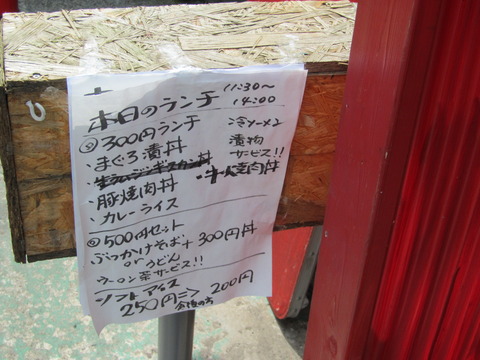 本日のランチ 11:30〜14:00
◎300円ランチ 冷ソーメン
・まぐろ漬丼 漬物サービス!!
・豚焼肉丼 ・牛焼肉丼
・カレーライス
◎500円セット
ぶっかけそば
orうどん +300円丼
ウーロン茶サービス!!
ソフトアイス
250円⇒200円